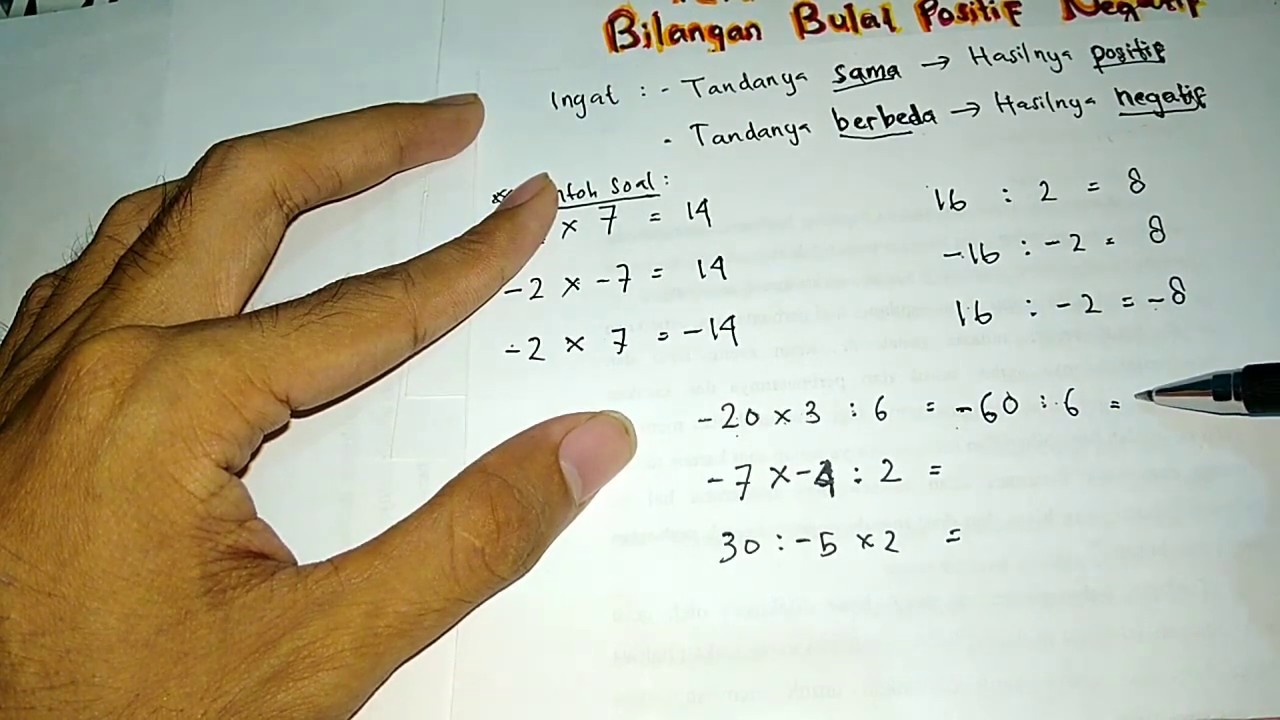 Bilangan Bulat Positif Negatif
Ingat : - Tandanya sama → Hasilnya positif
- Tandanya berbeda → Hasilnya negatif
Soal :
× 7 = 14
-2 × -7 = 14
-2 × 7 = -14
16 : 2 = 8
-16 : -2 = 8
16 : -2 = -8
-20 × 3 : 6 = -60 : 6 =
-7 × -4 : 2 =
30 : -5 × 2 =